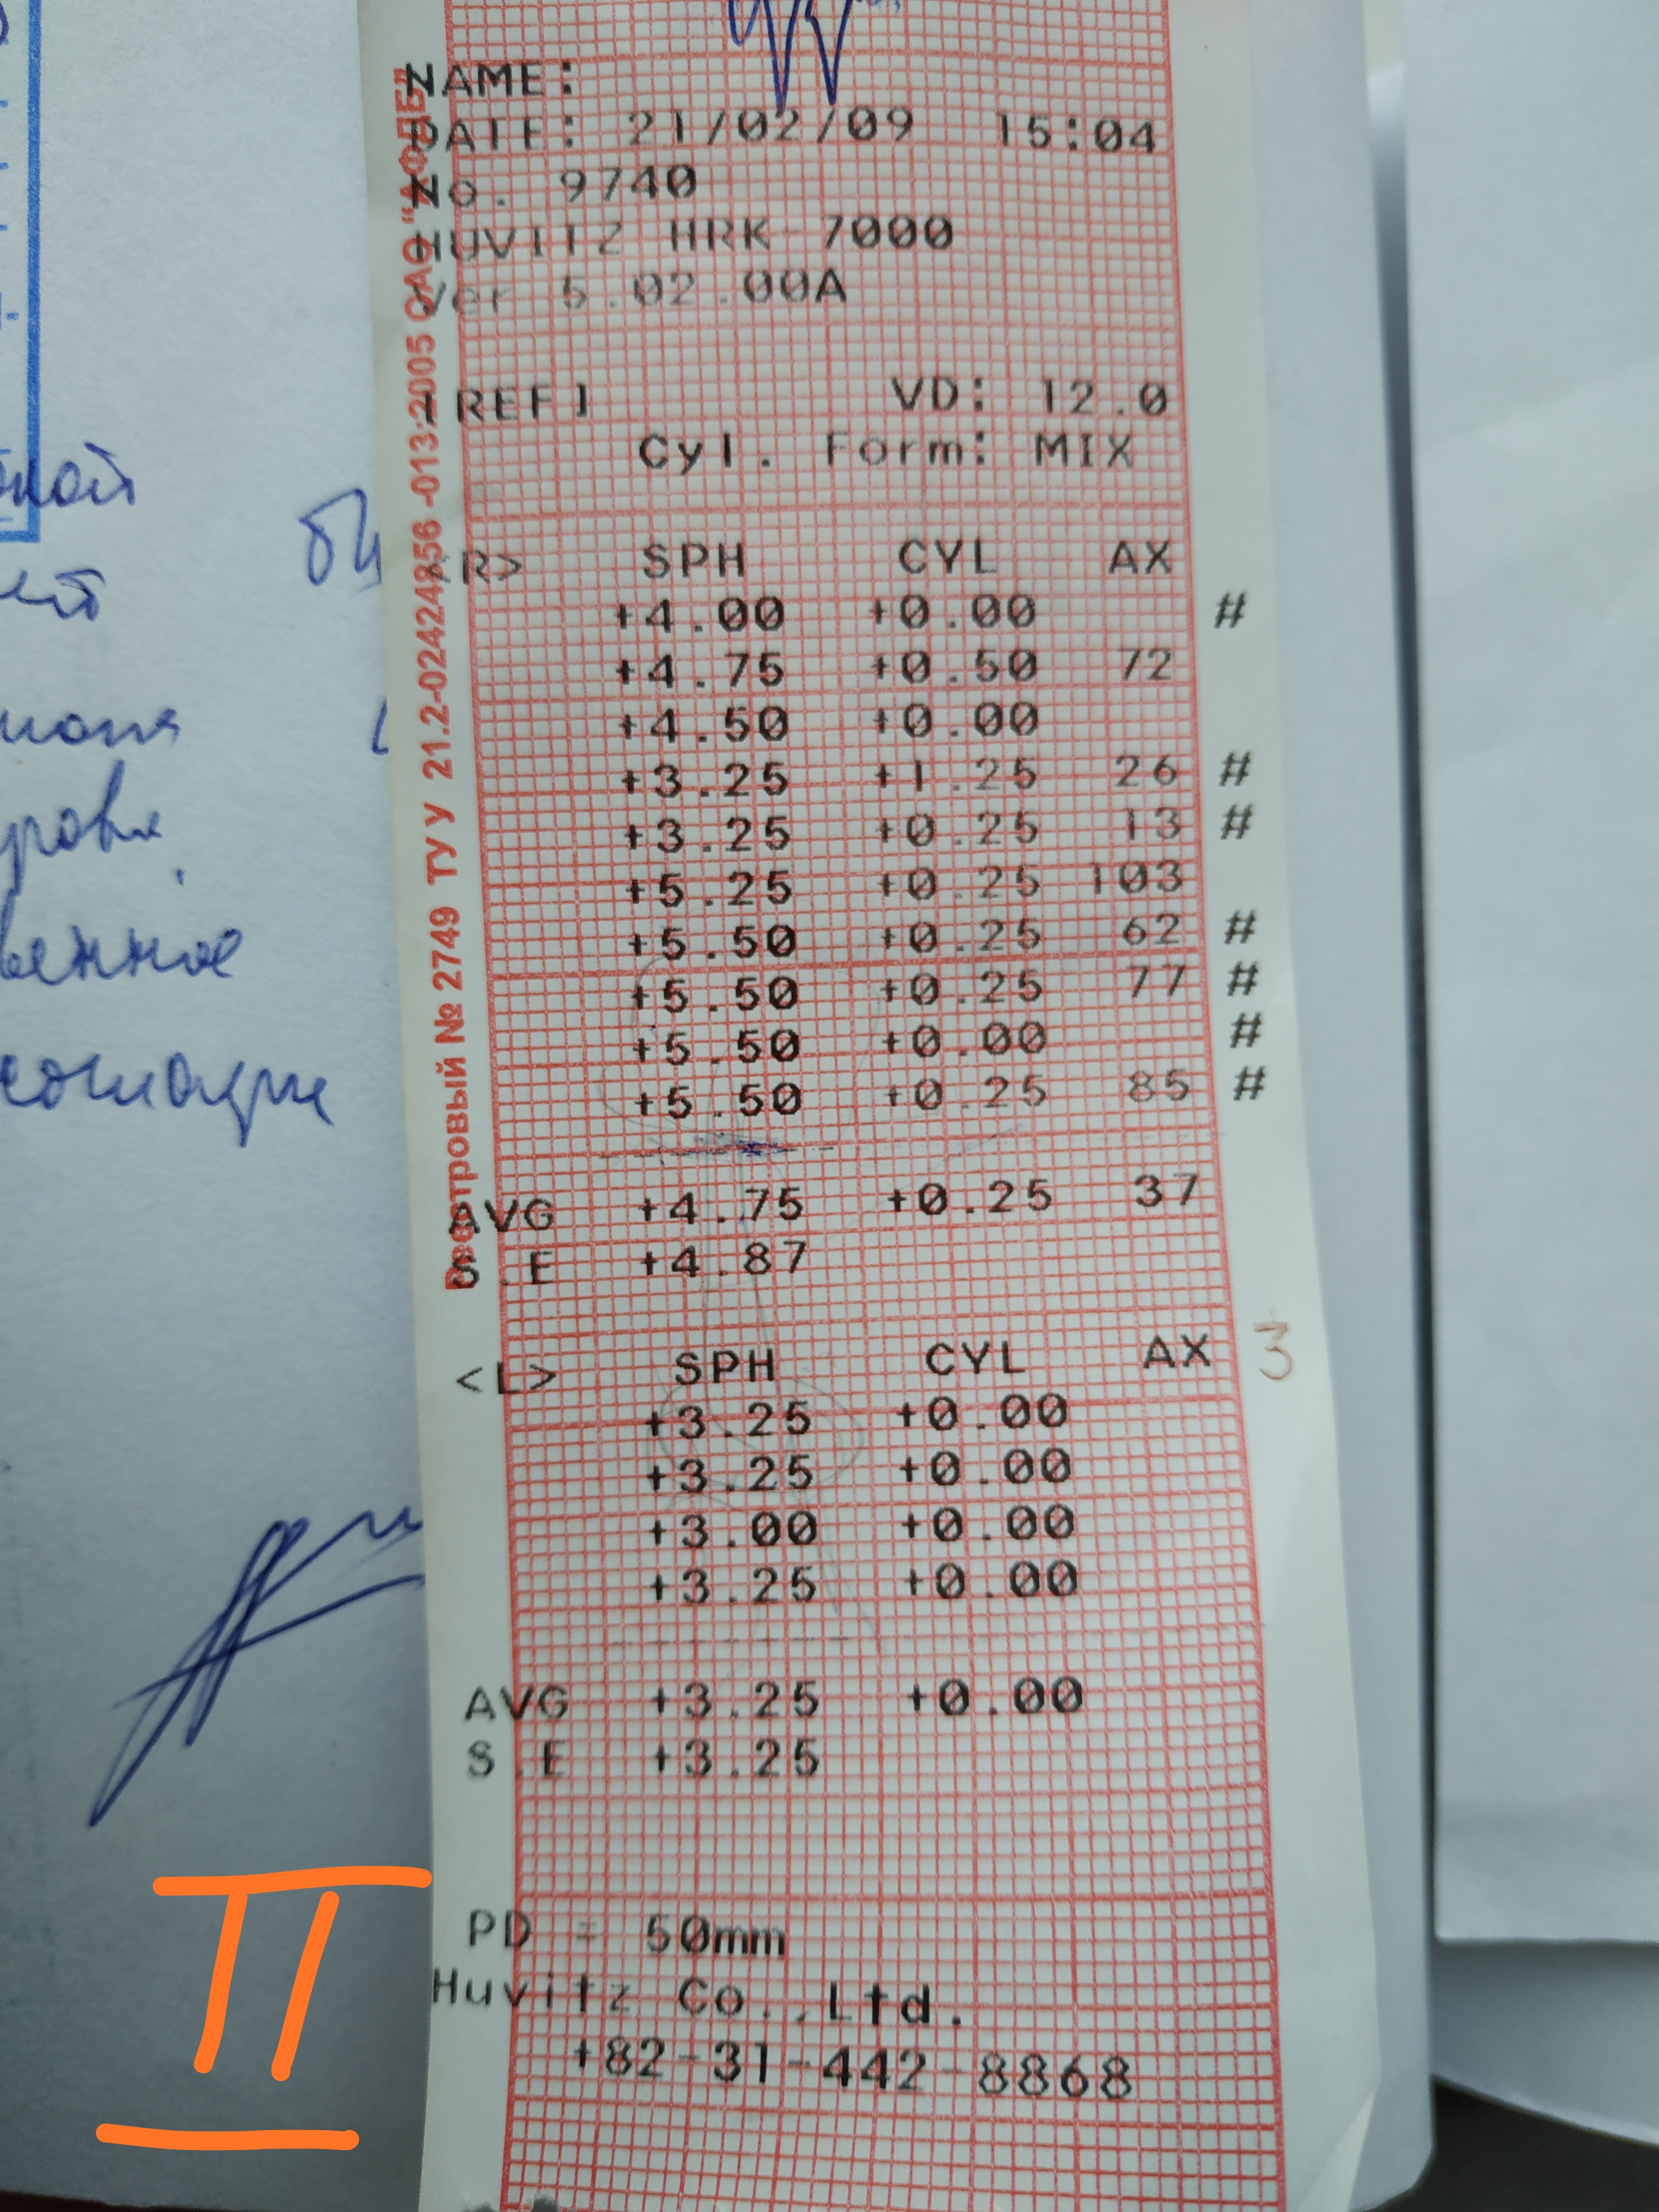 NAME:
DATE: 21/02/09 15:04
No. 9740
HUVITZ HRK-7000
Ver 5.02.00A
REF] VD: 12.0
Cyl. Form: MIX
<R> SPH CYL AX
+4.00 +0.00 #
+4.75 +0.50 72
+4.50 +0.00
+3.25 +1.25 26 #
+3.25 +0.25 13 #
+5.25 +0.25 103
+5.50 +0.25 62 #
+5.50 +0.25 77 #
+5.50 +0.00 #
+5.50 +0.25 85 #
AVG +4.75 +0.25 37
S.E +4.87
<L> SPH CYL AX 3
+3.25 +0.00
+3.25 +0.00
+3.00 +0.00
+3.25 +0.00
AVG +3.25 +0.00
S.E +3.25
PD = 50mm
Huvitz Co.,Ltd.
+82-31-442-8868
№ 2749 ТУ У 21.2-02424856-013:2005 ОАО
II